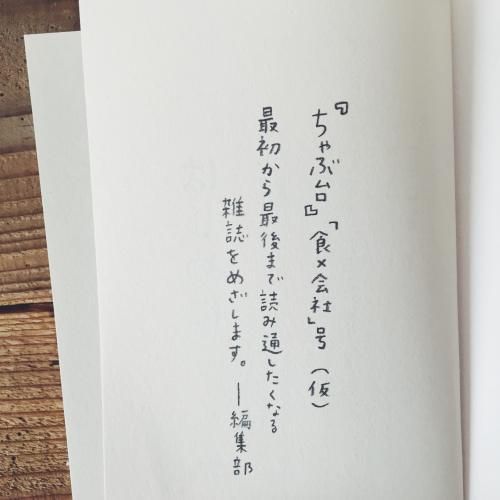 『ちゃぶ台』「食×会社」号（仮）
最初から最後まで読み通したくなる
雑誌をめざします。―編集部